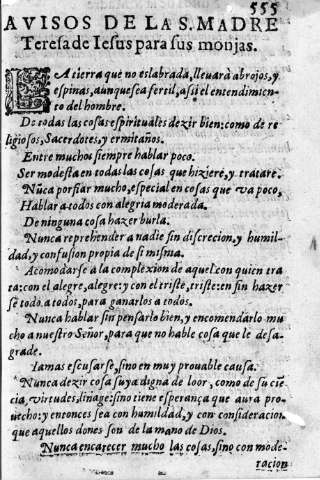 555
AVISOS DE LA S. MADRE
Teresa de Iesus para sus monjas.
LA tierra que no es labrada, lleuará abrojos, y
espinas, aunque sea fertil, assi el entendimien-
to del hombre.
De todas las cosas espirituales dezir bien: como de re
ligiosos, Sacerdotes, y ermitaños.
Entre muchos siempre hablar poco.
Ser modesta en todas las cosas que hiziere, y tratare.
Nūca porfiar mucho, especial en cosas que va poco,
Hablar a todos con alegria moderada.
De ninguna cosa hazer burla.
Nunca reprehender a nadie sin discrecion, y humil-
dad, y confusion propia de si misma.
Acomodarse a la complexion de aquel con quien tra
ta: con el alegre, alegre: y con el triste, triste: en fin hazer
se todo a todos, para ganarlos a todos.
Nunca hablar sin pensarlo bien, y encomendarlo mu
cho a nuestro Señor, para que no hable cosa que le desa-
grade.
Iamas escusarse, sino en muy prouable causa.
Nunca dezir cosa suya digna de loor, como de su ciē
cia, virtudes, linage: sino tiene esperança que aura pro
uecho: y entonces sea con humildad, y con consideracion
que aquellos dones son de la mano de Dios.
Nunca encarecer mucho las cosas, sino con mode-
racion